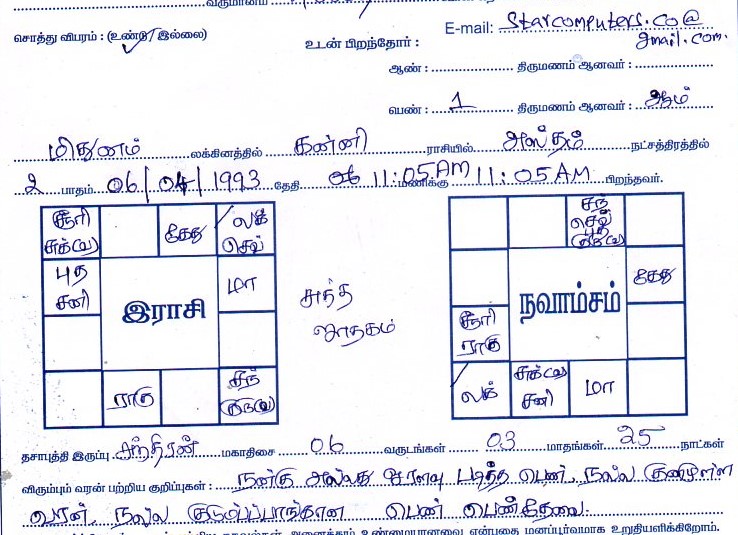 வருமானம்
சொத்து விபரம் : (உண்டு/இல்லை)
E-mail: starcomputers.co@
gmail.com.
உடன் பிறந்தோர் :
ஆண் : திருமணம் ஆனவர் :
பெண் : 1 திருமணம் ஆனவர் : ஆம்
மிதுனம் லக்கினத்தில் கன்னி ராசியில் அஸ்தம் நட்சத்திரத்தில்
2 பாதம் 06/04/1993 தேதி 11:05AM மணிக்கு 11:05 AM பிறந்தவர்.
சூரி சுக்(வ) கேது லக் செவ்
புத சனி இராசி மா
ராகு சந் குரு(வ)
சுத்த ஜாதகம்
சந் செவ் புத குரு(வ)
நவாம்சம் கேது
சூரி ராகு
லக் சுக்(வ) சனி மா
தசாபுத்தி இருப்பு சந்திரன் மகாதிசை 06 வருடங்கள் 03 மாதங்கள் 25 நாட்கள்
விரும்பும் வரன் பற்றிய குறிப்புகள் : நன்கு அல்லது ஓரளவு படித்த பெண், நல்ல குணமுள்ள
வரன், நல்ல குடும்பப்பாங்கான பெண் தேவை.
அனைத்தும் உண்மையானவை என்பதை மனப்பூர்வமாக உறுதியளிக்கிறோம்.